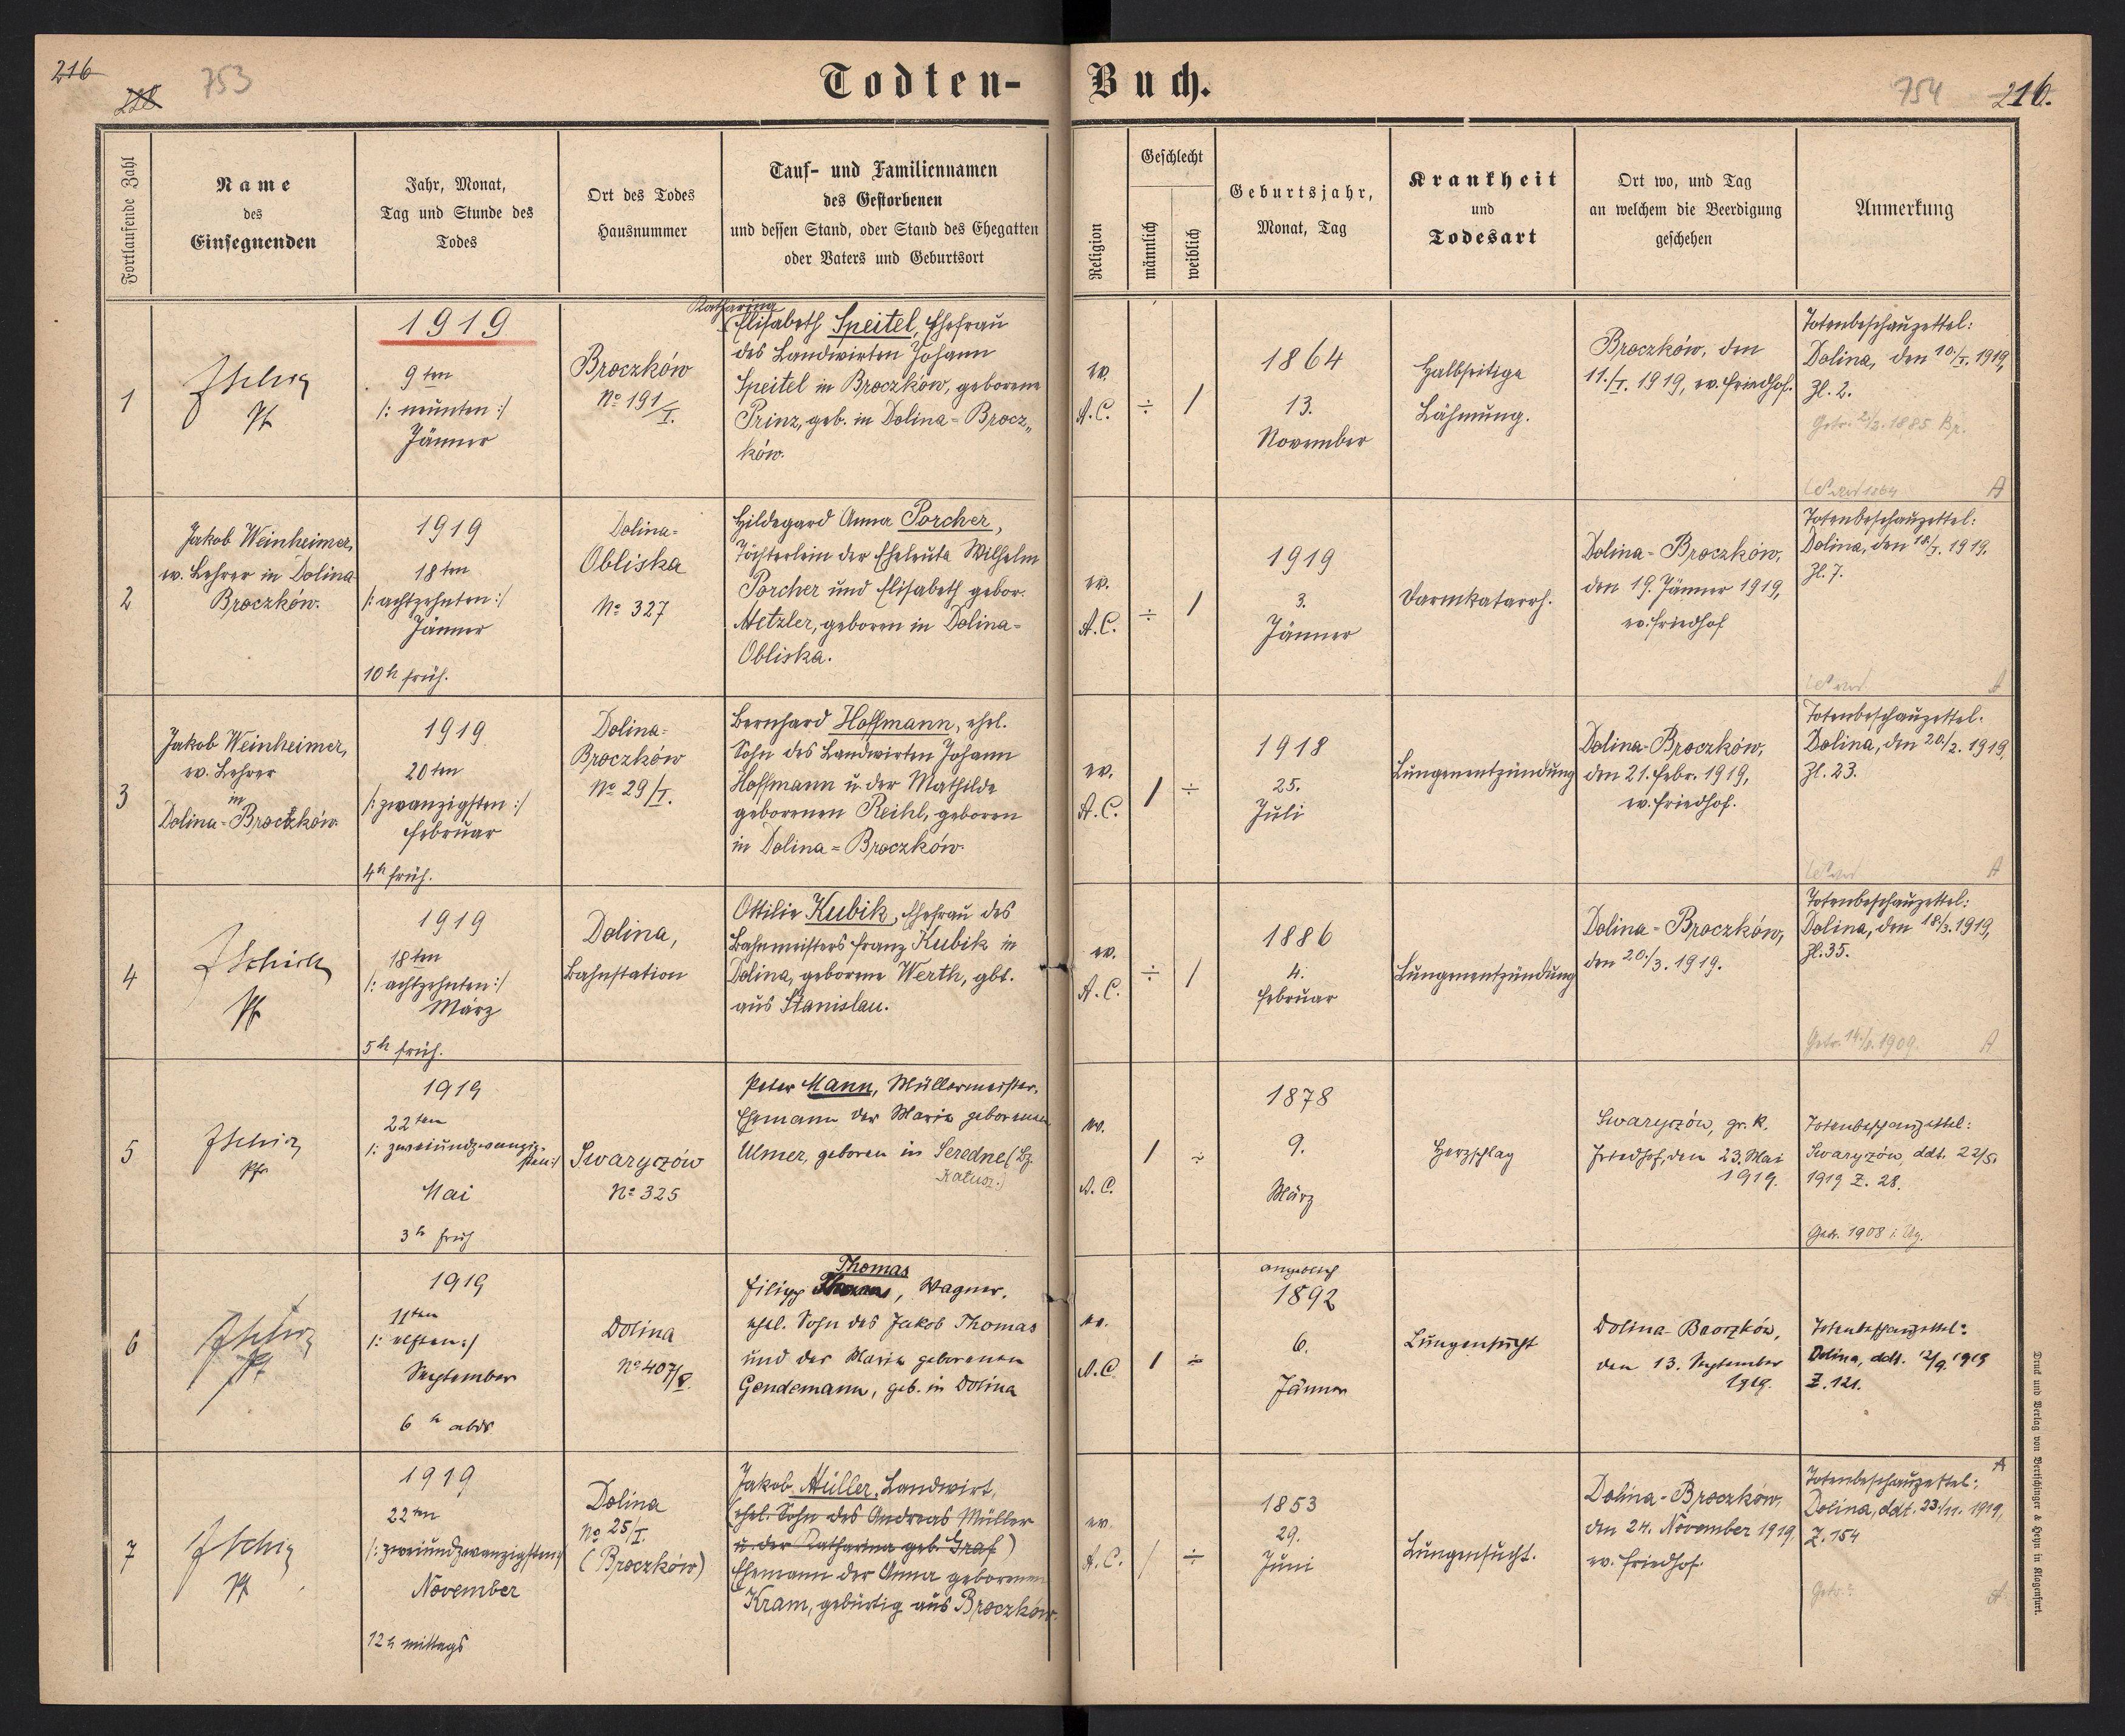 216
753
Todten-
Buch.
754
216.
Fortlaufende Zahl
Name
des
Einsegnenden
Jahr, Monat,
Tag und Stunde des
Todes
Ort des Todes
Hausnummer
Tauf- und Familiennamen
des Gestorbenen
und dessen Stand, oder Stand des Ehegatten
oder Vaters und Geburtsort
Religion
Geschlecht
männlich
weiblich
Geburtsjahr,
Monat, Tag
Krankheit
und
Todesart
Ort wo, und Tag
an welchem die Beerdigung
geschehen
Anmerkung
1
1919
9ten
/: neunten :/
Jänner
Broczków
No 191/I.
Katharina
(Elisabeth Speitel, Ehefrau
des Landwirten Johann
Speitel in Broczków, geborene
Prinz, geb. in Dolina=Brocz„
ków.
ev.
A.C.
÷
/
1864
13.
November
Halbseitige
Lähmung.
Broczków, den
11./I. 1919, ev. Friedhof.
Totenbeschauzettel:
Dolina, den 10./I. 1919,
Zl. 2.
2
Jakob Weinheimer,
ev. Lehrer in Dolina-
Broczków.
1919
18ten
/: achtzehnten :/
Jänner
10h früh.
Dolina=
Obliska
No 327
Hildegard Anna Porcher,
Töchterlein der Eheleute Wilhelm
Porcher und Elisabeth gebor.
Metzler, geboren in Dolina=
Obliska.
ev.
A.C.
÷
/
1919
3.
Jänner
Darmkatarrh.
Dolina=Broczków,
den 19. Jänner 1919,
ev. Friedhof
Totenbeschauzettel:
Dolina, den 18./I. 1919.
Zl. 7.
A
3
Jakob Weinheimer,
ev. Lehrer
in
Dolina=Broczków.
1919
20ten
/: zwanzigsten :/
Februar
4h früh.
Dolina=
Broczków
No 29/I.
Bernhard Hoffmann, ehel.
Sohn des Landwirten Johann
Hoffmann u. der Mathilde
geborenen Reihl, geboren
in Dolina=Broczków.
ev.
A.C.
/
÷
1918
25.
Juli
Lungenentzündung
Dolina-Broczków,
den 21. Febr. 1919,
ev. Friedhof.
Totenbeschauzettel:
Dolina, den 20./2. 1919,
Zl. 23.
A
4
1919
18ten
/: achtzehnten :/
März
5h früh.
Dolina,
Bahnstation
Ottilie Kubik, Ehefrau des
Bahnmeisters Franz Kubik in
Dolina, geborene Werth, gbt.
aus Stanislau.
ev.
A.C.
÷
/
1886
4.
Februar
Lungenentzündung
Dolina=Broczków,
den 20./3. 1919.
Totenbeschauzettel:
Dolina, den 18./3. 1919,
Zl. 35.
A
5
1919
22ten
/: zweiundzwanzig-
sten :/
Mai
3h früh
Swaryczów
No 325
Peter Mann, Müllermeister,
Ehemann der Maria geborenen
Ulmer, geboren in Seredne (Bz.
Kałusz.)
ev.
A.C.
/
÷
1878
9.
März
Herzschlag
Swaryczów, gr. k.
Friedhof, den 23. Mai
1919.
Totenbeschauzettel:
Swaryczów, ddt. 22/5.
1919 Z. 28.
6
1919
11ten
/: elften :/
September
6h abds.
Dolina
No 407/V.
Thomas
Filipp Thomas, Wagner,
ehel. Sohn des Jakob Thomas
und der Maria geborenen
Gendemann, geb. in Dolina
ev.
A.C.
/
÷
angeblich
1892
6.
Jänner
Lungensucht
Dolina Broczków,
den 13. September
1919.
Totenbeschauzettel:
Dolina, ddt. 12/9. 1919
Z. 121.
7
1919
22ten
/: zweiundzwanzigsten :/
November
12h mittags
Dolina
No 25/I.
(Broczków)
Jakob Müller, Landwirt,
(ehel. Sohn des Andreas Müller
u. der Katharina geb. Graf)
Ehemann der Anna geborenen
Kram, gebürtig aus Broczków.
ev.
A.C.
/
÷
1853
29.
Juni
Lungensucht.
Dolina-Broczków,
den 24. November 1919,
ev. Friedhof.
A
Totenbeschauzettel:
Dolina, ddt. 23./11. 1919,
Z. 154
Druck und Verlag von Bertschinger & Heyn in Klagenfurt.